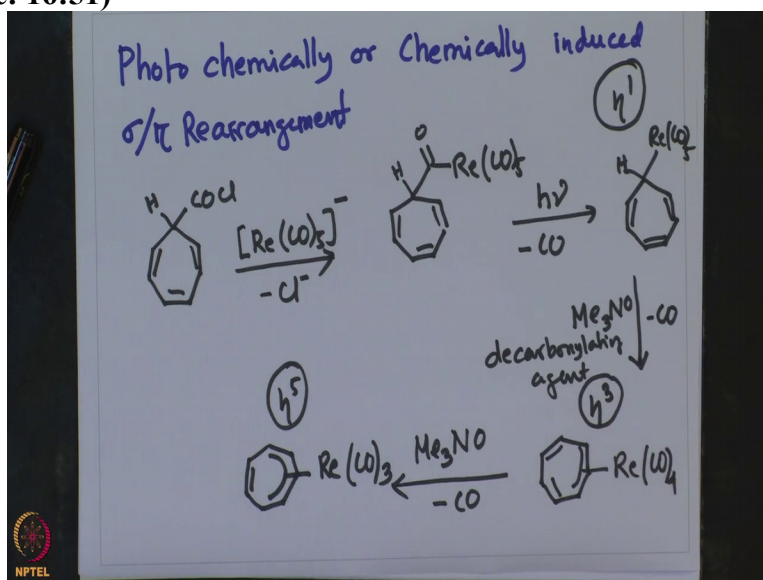 : 10:51)
Photo chemically or Chemically induced
σ/π Rearrangement
η¹
H COCl
[Re(CO)₅]⁻
-Cl⁻
O
H
-Re(CO)₅
hν
-CO
Re(CO)₅
H
Me₃NO -CO
decarbonylating
agent
η³
Re(CO)₄
Me₃NO
-CO
η⁵
Re(CO)₃
NPTEL